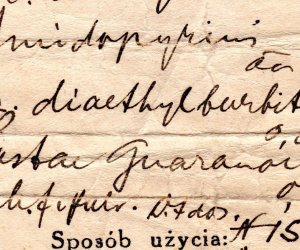 midopyrini
āā
diaethylbarbit
astae Guaranae
M.f.pulv. D.t.dos. № 15
Sposób użycia: